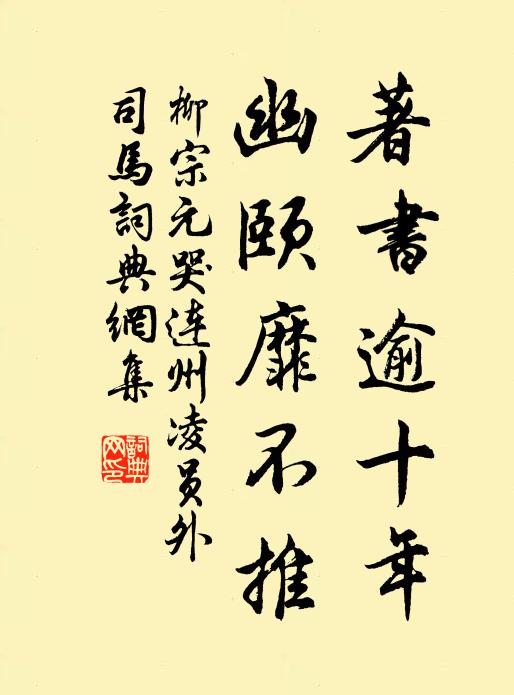 著書逾十年
幽頤靡不推
柳宗元哭连州凌员外
司馬詞典網集
詞典
网印